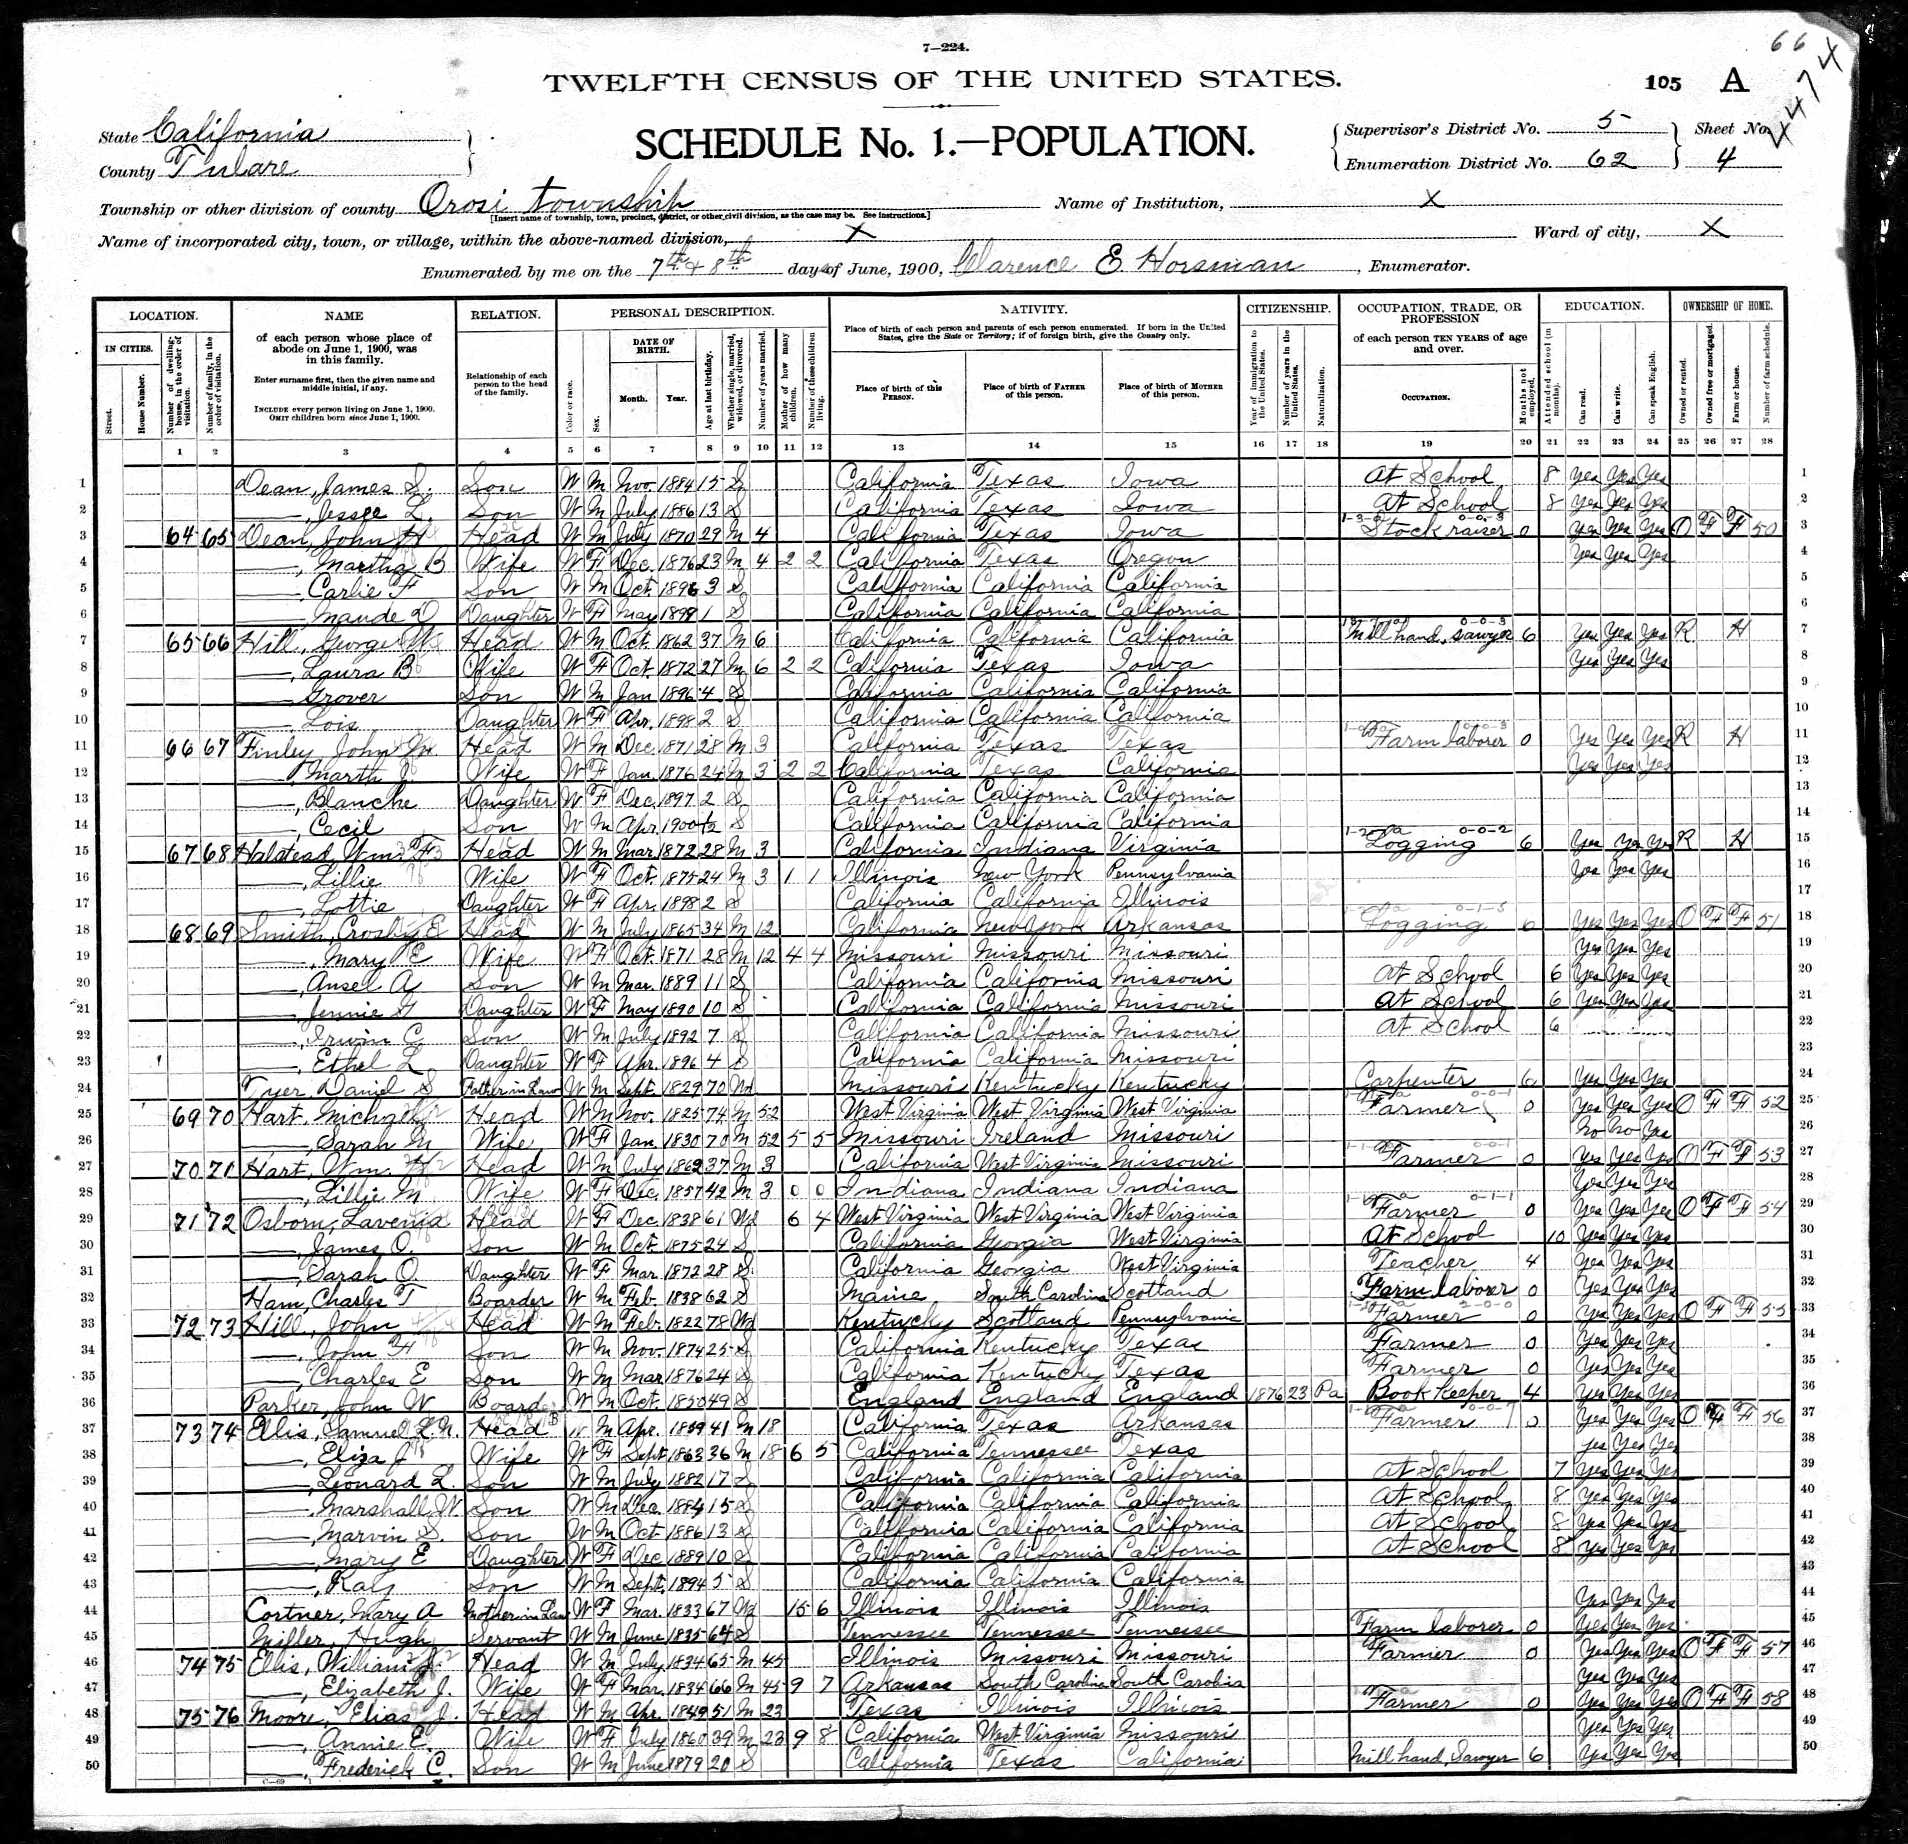 7—224.
66
4474
TWELFTH CENSUS OF THE UNITED STATES.
105 A
State California
County Tulare
SCHEDULE No. 1.—POPULATION.
Supervisor's District No. 5
Enumeration District No. 62
Sheet No. 4
Township or other division of county Orosi township
Name of Institution, X
[Insert name of township, town, precinct, district, or other civil division, as the case may be. See instructions.]
Name of incorporated city, town, or village, within the above-named division, X
Ward of city, X
Enumerated by me on the 7th & 8th days of June, 1900, Clarence E. Horsman, Enumerator.
LOCATION. NAME RELATION. PERSONAL DESCRIPTION. NATIVITY. CITIZENSHIP. OCCUPATION, TRADE, OR PROFESSION EDUCATION. OWNERSHIP OF HOME.
IN CITIES.
Street.
House Number.
Number of dwelling-house, in the order of visitation.
Number of family, in the order of visitation.
of each person whose place of abode on June 1, 1900, was in this family.
Enter surname first, then the given name and middle initial, if any.
INCLUDE every person living on June 1, 1900.
OMIT children born since June 1, 1900.
Relationship of each person to the head of the family.
Color or race.
Sex.
DATE OF BIRTH.
Month. Year.
Age at last birthday.
Whether single, married, widowed, or divorced.
Number of years married.
Mother of how many children.
Number of these children living.
Place of birth of each person and parents of each person enumerated. If born in the United States, give the State or Territory; if of foreign birth, give the Country only.
Place of birth of this PERSON.
Place of birth of FATHER of this person.
Place of birth of MOTHER of this person.
Year of immigration to the United States.
Number of years in the United States.
Naturalization.
of each person TEN YEARS of age and over.
OCCUPATION.
Months not employed.
Attended school (in months).
Can read.
Can write.
Can speak English.
Owned or rented.
Owned free or mortgaged.
Farm or house.
Number of farm schedule.
1 2 3 4 5 6 7 8 9 10 11 12 13 14 15 16 17 18 19 20 21 22 23 24 25 26 27 28
1 Dean, James S. Son W M Nov. 1884 15 S California Texas Iowa At School 8 Yes Yes Yes 1
2 —, Jessee L. Son W M July 1886 13 S California Texas Iowa At School 8 Yes Yes Yes 2
3 64 65 Dean, John H Head W M July 1870 29 M 4 California Texas Iowa Stock raiser 0 Yes Yes Yes O F F 50 3
4 —, Martha B Wife W F Dec. 1876 23 M 4 2 2 California Texas Oregon Yes Yes Yes 4
5 —, Carlie F Son W M Oct. 1896 3 S California California California 5
6 —, Maude D Daughter W F May 1899 1 S California California California 6
7 65 66 Hill, George W. Head W M Oct. 1862 37 M 6 California California California Mill hand, Sawyer 6 Yes Yes Yes R H 7
8 —, Laura B Wife W F Oct. 1872 27 M 6 2 2 California Texas Iowa Yes Yes Yes 8
9 —, Grover Son W M Jan 1896 4 S California California California 9
10 —, Lois Daughter W F Apr. 1898 2 S California California California 10
11 66 67 Finley, John M. Head W M Dec. 1871 28 M 3 California Texas Texas Farm laborer 0 Yes Yes Yes R H 11
12 —, Marth J. Wife W F Jan. 1876 24 M 3 2 2 California Texas California Yes Yes Yes 12
13 —, Blanche Daughter W F Dec. 1897 2 S California California California 13
14 —, Cecil Son W M Apr. 1900 /12 S California California California 14
15 67 68 Halstead, Wm. F Head W M Mar. 1872 28 M 3 California Indiana Virginia Logging 6 Yes Yes Yes R H 15
16 —, Lillie Wife W F Oct. 1875 24 M 3 1 1 Illinois New York Pennsylvania Yes Yes Yes 16
17 —, Lottie Daughter W F Apr. 1898 2 S California California Illinois 17
18 68 69 Smith, Crosby E Head W M July 1865 34 M 12 California New York Arkansas Logging 6 Yes Yes Yes O F F 51 18
19 —, Mary E Wife W F Oct. 1871 28 M 12 4 4 Missouri Missouri Missouri Yes Yes Yes 19
20 —, Ansel A Son W M Mar. 1889 11 S California California Missouri At School 6 Yes Yes Yes 20
21 —, Jennie G Daughter W F May 1890 10 S California California Missouri At School 6 Yes Yes Yes 21
22 —, Irwin C Son W M July 1892 7 S California California Missouri At School 6 22
23 —, Ethel L Daughter W F Apr. 1896 4 S California California Missouri 23
24 Tyer, Daniel S Father in Law W M Sept. 1829 70 Wd Missouri Kentucky Kentucky Carpenter 6 Yes Yes Yes 24
25 69 70 Hart, Michael Head W M Nov. 1825 74 M 52 West Virginia West Virginia West Virginia Farmer 0 Yes Yes Yes O F F 52 25
26 —, Sarah M Wife W F Jan. 1830 70 M 52 5 5 Missouri Ireland Missouri No No Yes 26
27 70 71 Hart, Wm. Head W M July 1862 37 M 3 California West Virginia Missouri Farmer 0 Yes Yes Yes O F F 53 27
28 —, Lillie M Wife W F Dec. 1857 42 M 3 0 0 Indiana Indiana Indiana Yes Yes Yes 28
29 71 72 Osborn, Lavenia Head W F Dec. 1838 61 Wd 6 4 West Virginia West Virginia West Virginia Farmer 0 Yes Yes Yes O F F 54 29
30 —, James O. Son W M Oct. 1875 24 S California Georgia West Virginia At School 10 Yes Yes Yes 30
31 —, Sarah O. Daughter W F Mar. 1872 28 S California Georgia West Virginia Teacher 4 Yes Yes Yes 31
32 Ham, Charles T Boarder W M Feb. 1838 62 S Maine South Carolina Scotland Farm laborer 0 Yes Yes Yes 32
33 72 73 Hill, John Head W M Feb. 1822 78 Wd Kentucky Scotland Pennsylvania Farmer 0 Yes Yes Yes O F F 55 33
34 —, John F Son W M Nov. 1874 25 S California Kentucky Texas Farmer 0 Yes Yes Yes 34
35 —, Charles E Son W M Mar 1876 24 S California Kentucky Texas Farmer 0 Yes Yes Yes 35
36 Parker, John W Boarder W M Oct. 1850 49 S England England England 1876 23 Pa Book Keeper 4 Yes Yes Yes 36
37 73 74 Ellis, Samuel L.N. Head W M Apr. 1859 41 M 18 California Texas Arkansas Farmer 0 Yes Yes Yes O F F 56 37
38 —, Eliza J Wife W F Sept. 1863 36 M 18 6 5 California Tennessee Texas Yes Yes Yes 38
39 —, Leonard L. Son W M July 1882 17 S California California California At School 7 Yes Yes Yes 39
40 —, Marshall W Son W M Dec. 1884 15 S California California California At School 8 Yes Yes Yes 40
41 —, Marvin S. Son W M Oct 1886 13 S California California California At School 8 Yes Yes Yes 41
42 —, Mary E Daughter W F Dec 1889 10 S California California California At School 8 Yes Yes Yes 42
43 —, Ray Son W M Sept. 1894 5 S California California California 43
44 Cortner, Mary A Mother in Law W F Mar. 1833 67 Wd 15 6 Illinois Illinois Illinois Yes Yes Yes 44
45 Miller, Hugh Servant W M June 1835 64 S Tennessee Tennessee Tennessee Farm laborer 0 Yes Yes Yes 45
46 74 75 Ellis, William J. Head W M July 1834 65 M 45 Illinois Missouri Missouri Farmer 0 Yes Yes Yes O F F 57 46
47 —, Elizabeth J. Wife W F Mar. 1834 66 M 45 9 7 Arkansas South Carolina South Carolina Yes Yes Yes 47
48 75 76 Moore, Elias J. Head W M Apr. 1849 51 M 23 Texas Illinois Illinois Farmer 0 Yes Yes Yes O F F 58 48
49 —, Annie E. Wife W F July 1860 39 M 23 9 8 California West Virginia Missouri Yes Yes Yes 49
50 —, Frederick C. Son W M June 1879 20 S California Texas California Mill hand, Sawyer 6 Yes Yes Yes 50